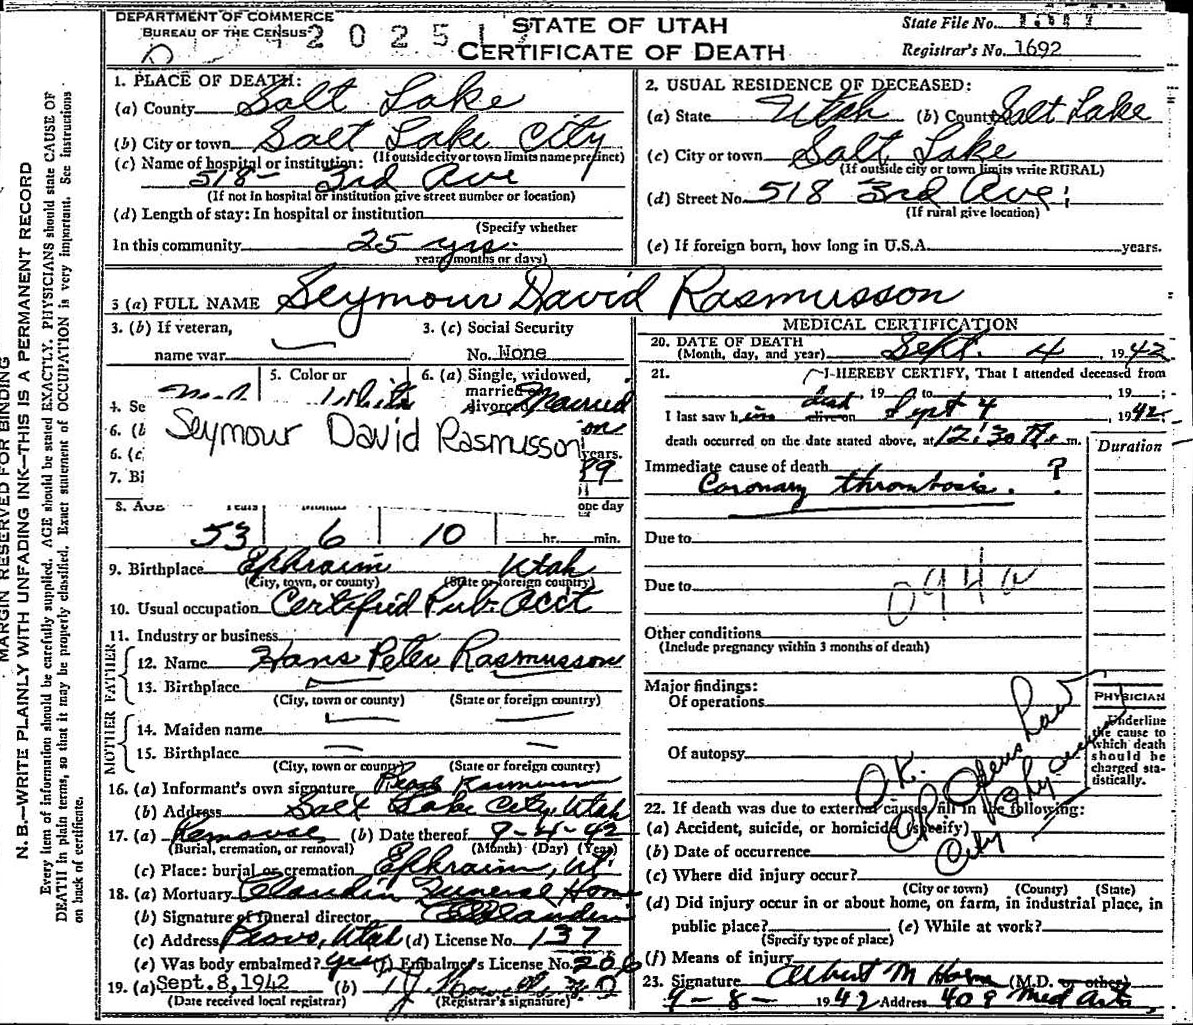 DEPARTMENT OF COMMERCE
BUREAU OF THE CENSUS
2 0 2 5 1
STATE OF UTAH
CERTIFICATE OF DEATH
State File No.
Registrar's No. 1692
MARGIN RESERVED FOR BINDING
N. B.—WRITE PLAINLY WITH UNFADING INK—THIS IS A PERMANENT RECORD
Every item of information should be carefully supplied. AGE should be stated EXACTLY. PHYSICIANS should state CAUSE OF
DEATH in plain terms, so that it may be properly classified. Exact statement of OCCUPATION is very important. See instructions
on back of certificate.
1. PLACE OF DEATH:
(a) County Salt Lake
(b) City or town Salt Lake City
(If outside city or town limits name precinct)
(c) Name of hospital or institution:
518- 3rd Ave
(If not in hospital or institution give street number or location)
(d) Length of stay: In hospital or institution
(Specify whether
In this community 25 yrs.
years, months or days)
2. USUAL RESIDENCE OF DECEASED:
(a) State Utah (b) County Salt Lake
(c) City or town Salt Lake
(If outside city or town limits write RURAL)
(d) Street No. 518 3rd Ave;
(If rural give location)
(e) If foreign born, how long in U.S.A. years.
3 (a) FULL NAME Seymour David Rasmusson
3. (b) If veteran,
name war
3. (c) Social Security
No. None
5. Color or
White
6. (a) Single, widowed,
married
divorced Married
4. Se
6. (b
6. (c
years.
7. Bi
Seymour David Rasmusson
8. AGE Years Months one day
53 6 10 hr. min.
9. Birthplace Ephraim Utah
(City, town, or county) (State or foreign country)
10. Usual occupation Certified Pub. Acct
11. Industry or business
FATHER
12. Name Hans Peter Rasmusson
13. Birthplace
(City, town or county) (State or foreign country)
MOTHER
14. Maiden name
15. Birthplace
(City, town or county) (State or foreign country)
16. (a) Informant's own signature
(b) Address Salt Lake City, Utah
17. (a) (b) Date thereof 9-4-42
(Burial, cremation, or removal) (Month) (Day) (Year)
(c) Place: burial or cremation Ephraim, Ut.
18. (a) Mortuary Claudin Funeral Home
(b) Signature of funeral director
(c) Address Provo, Utah (d) License No. 137
(e) Was body embalmed? yes (f) Embalmer's License No. 206
19. (a) Sept. 8, 1942 (b)
(Date received local registrar) (Registrar's signature)
MEDICAL CERTIFICATION
20. DATE OF DEATH
(Month, day, and year) Sept. 4, 1942
21. I HEREBY CERTIFY, That I attended deceased from
, 19 to , 19 ;
I last saw him alive on dead Sept 4 1942;
death occurred on the date stated above, at 12:30 m.
Duration
Immediate cause of death ?
Coronary thrombosis. ?
Due to
Due to
094a
Other conditions
(Include pregnancy within 3 months of death)
Major findings:
Of operations
Of autopsy
PHYSICIAN
Underline
the cause to
which death
should be
charged sta-
tistically.
O.K.
City Physician
22. If death was due to external causes, fill in the following:
(a) Accident, suicide, or homicide (specify)
(b) Date of occurrence
(c) Where did injury occur?
(City or town) (County) (State)
(d) Did injury occur in or about home, on farm, in industrial place, in
public place? (e) While at work?
(Specify type of place)
(f) Means of injury
23. Signature Albert M (M.D. or other)
9-8- 1942 Address 409 Med Arts